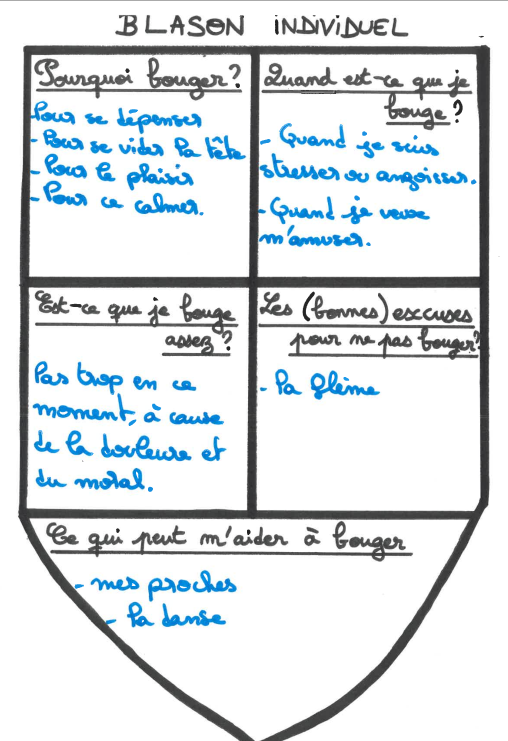 BLASON INDIVIDUEL
Pourquoi bouger?
Pour se dépenser
- Pour se vider la tête
- Pour le plaisir
- Pour ce calmer.
Quand est-ce que je
bouge?
- Quand je suis
stresser ou angoisser.
- Quand je veux
m'amuser.
Est-ce que je bouge
assez?
Pas trop en ce
moment, à cause
de la douleure et
du moral.
Les (bonnes) excuses
pour ne pas bouger?
- la flème
Ce qui peut m'aider à bouger
- mes proches
- la danse